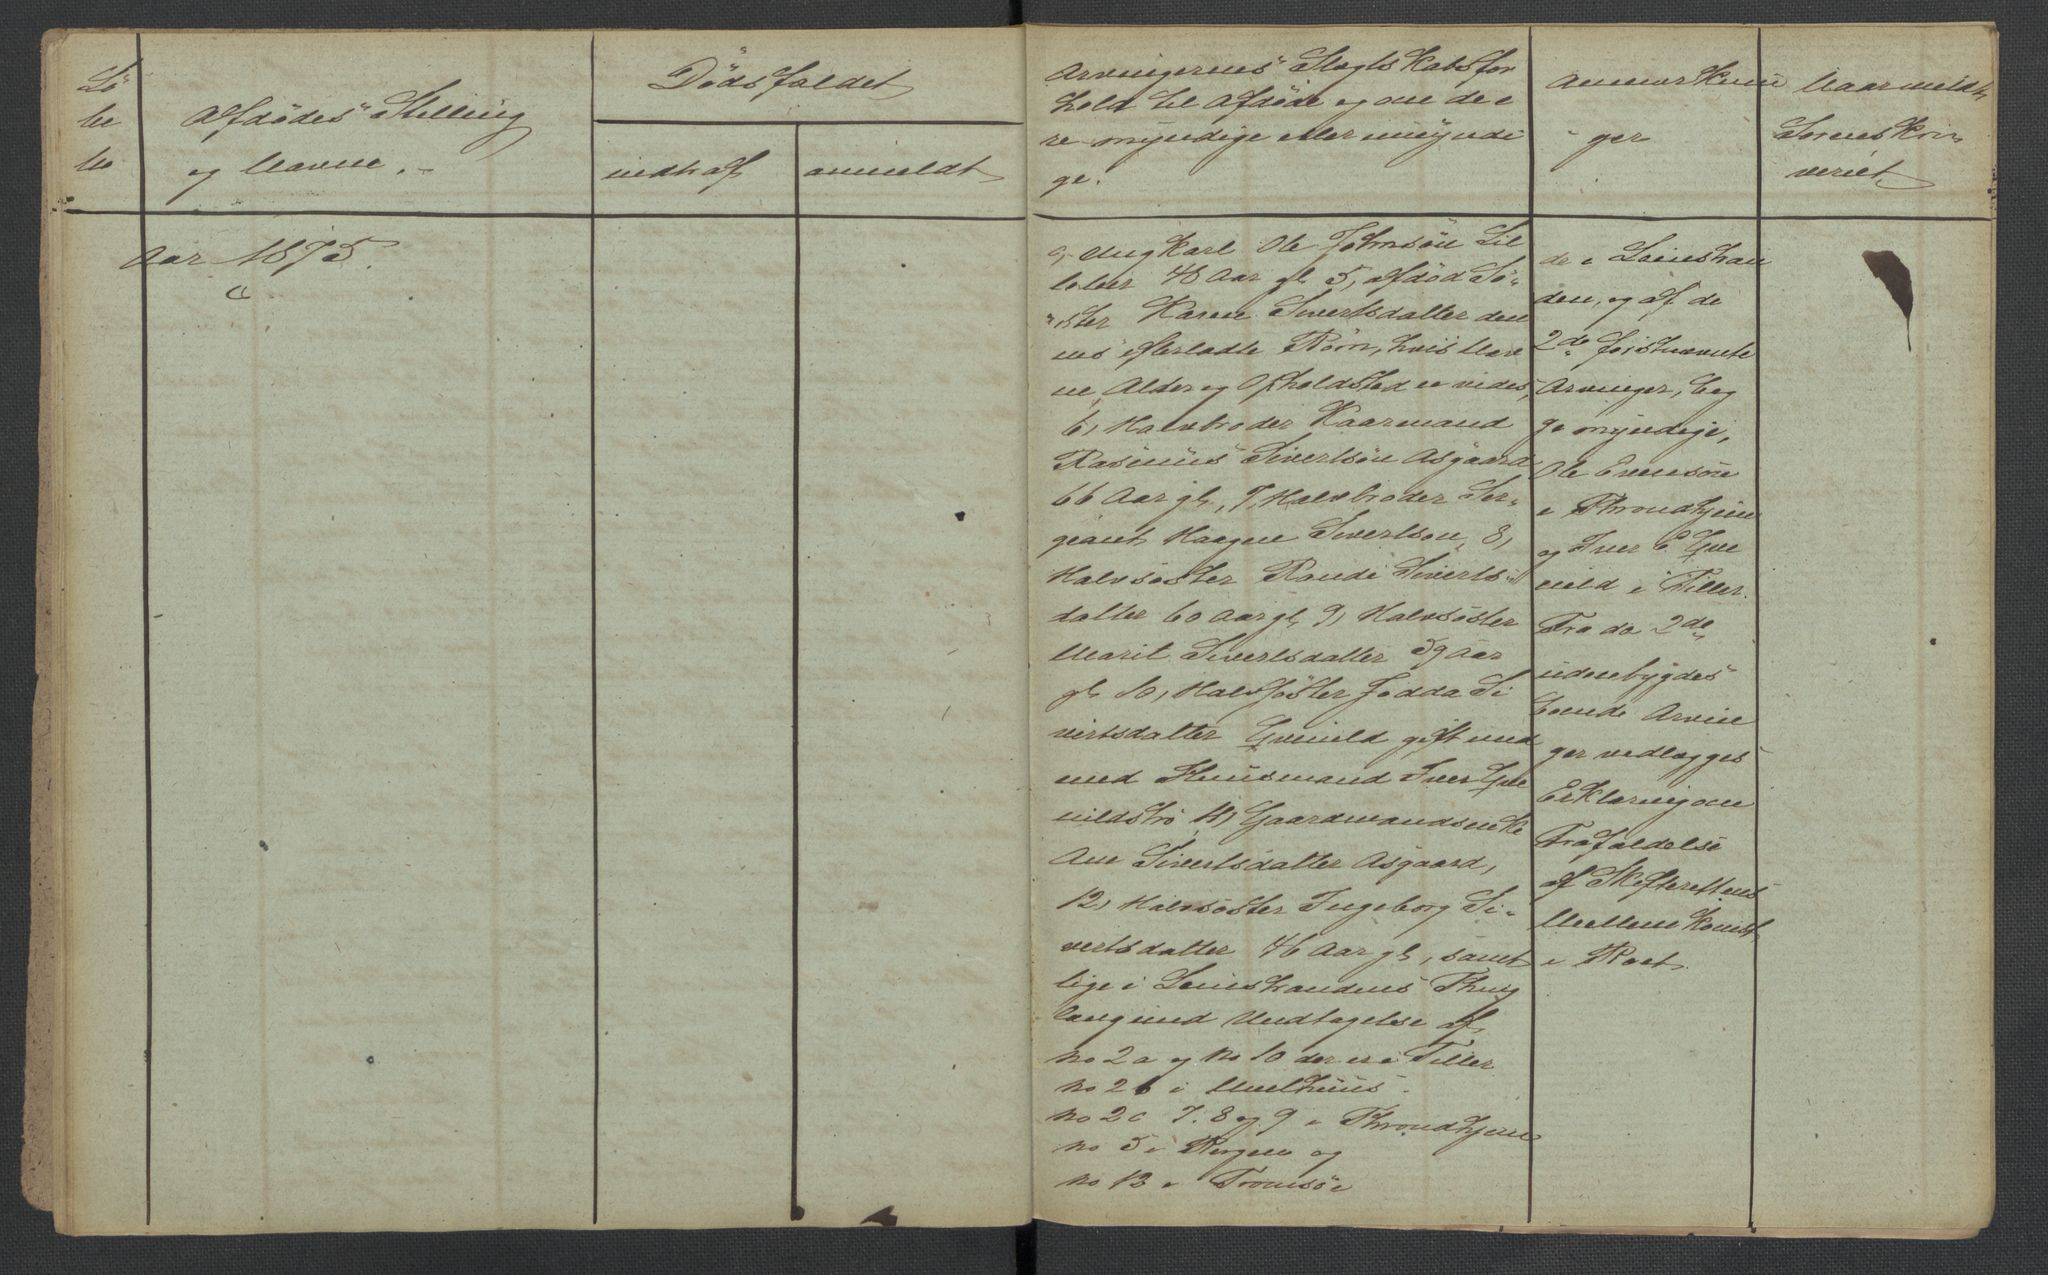 Lö
be
No
Afdödes Stilling
og Navne.
Dödsfaldet
indtraf
anmeldt
Aar 1875.
Arvingernes Slegtskabsfor
hold til Afdöde og om de e
re myndige eller umyndi
ge.
Anmærknin
ger
Naar meldt
Sorenskri
veriet
c, Ungkarl Ole Johnsön Lil
48 Aar gl. 5, afdöd Sö-
ster Karen Sivertsdatter den
nes efterladte Börn, hvis Nav
ne, Alder og Opholdsted ei vides,
6, Halvbroder Kaarmand
Rasmus Sivertsön Asgaard
66 Aar gl., 7, Halvbroder Ser-
geant Haagen Sivertsön, 8,
Halvsöster Randi Siverts
datter 60 Aar gl, 9, Halvsöster
Marit Sivertsdatter 59 Aar
gl. 10, Halvsöster Jodda Si
vertsdatter Qvenild gift med
med Huusmand Iver Qve
nildströ, 11, Gaardmandsenke
Ane Sivertsdatter Asgaard,
12, Halvsöster Ingeborg Si-
vertsdatter 46 Aar gl, samt
lige i Leinstrandens Thing
laug med Undtagelse af
No 2a og No 10 der er i Tiller
No 2b i Meelhuus.
No 2c 7. 8 og 9 i Throndhjem
No 5 i Bergen og
No 12 i Tromsöe
de i Leinstran
den, og af de
2de förstnævnte
Arvinger, beg
ge myndige,
Ole Evensöne
i Throndhjem
og Iver E Qve
nild i Tiller.
Fra de 2de
udenbygdes
boende Arvin
ger vedlægges
Erklæring om
Frafaldelse
af Skifterettens
Mellemkomst
i Boet.